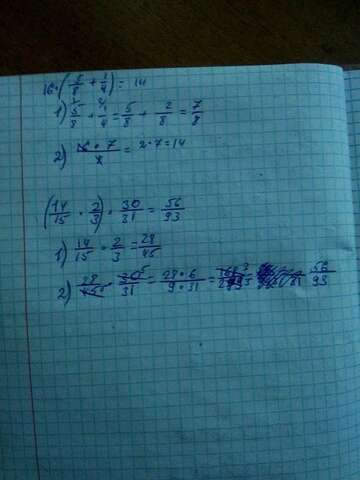 16·(5/8 + 1/4) = 14
1) 5/8 + 1/4 = 5/8 + 2/8 = 7/8
2) 16·7/8 = 2·7 = 14
(14/15 · 2/3) · 30/31 = 56/93
1) 14/15 · 2/3 = 28/45
2) 28/45 · 30/31 = 28·6/9·31 = 56/93